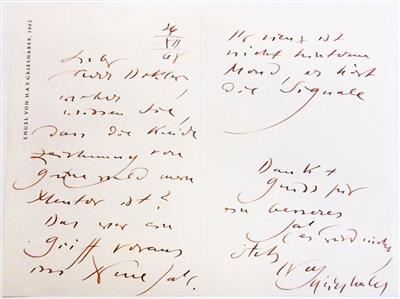 ENGEL VON H.A.P. GRIESHABER, 1962
24
XII
68
Lieber
Herr Doktor,
woher
wissen Sie,
dass die Kreide
zeichnung von
Grünewald mein
Mentor ist?
Das war ein
Griff voraus
ins Neue Jahr.
ist
nicht hinterm
Mond, er hört
die Signale
Dank +
Gruss für
ein besseres
Jahr
(es wird nicht
stets
Grieshaber